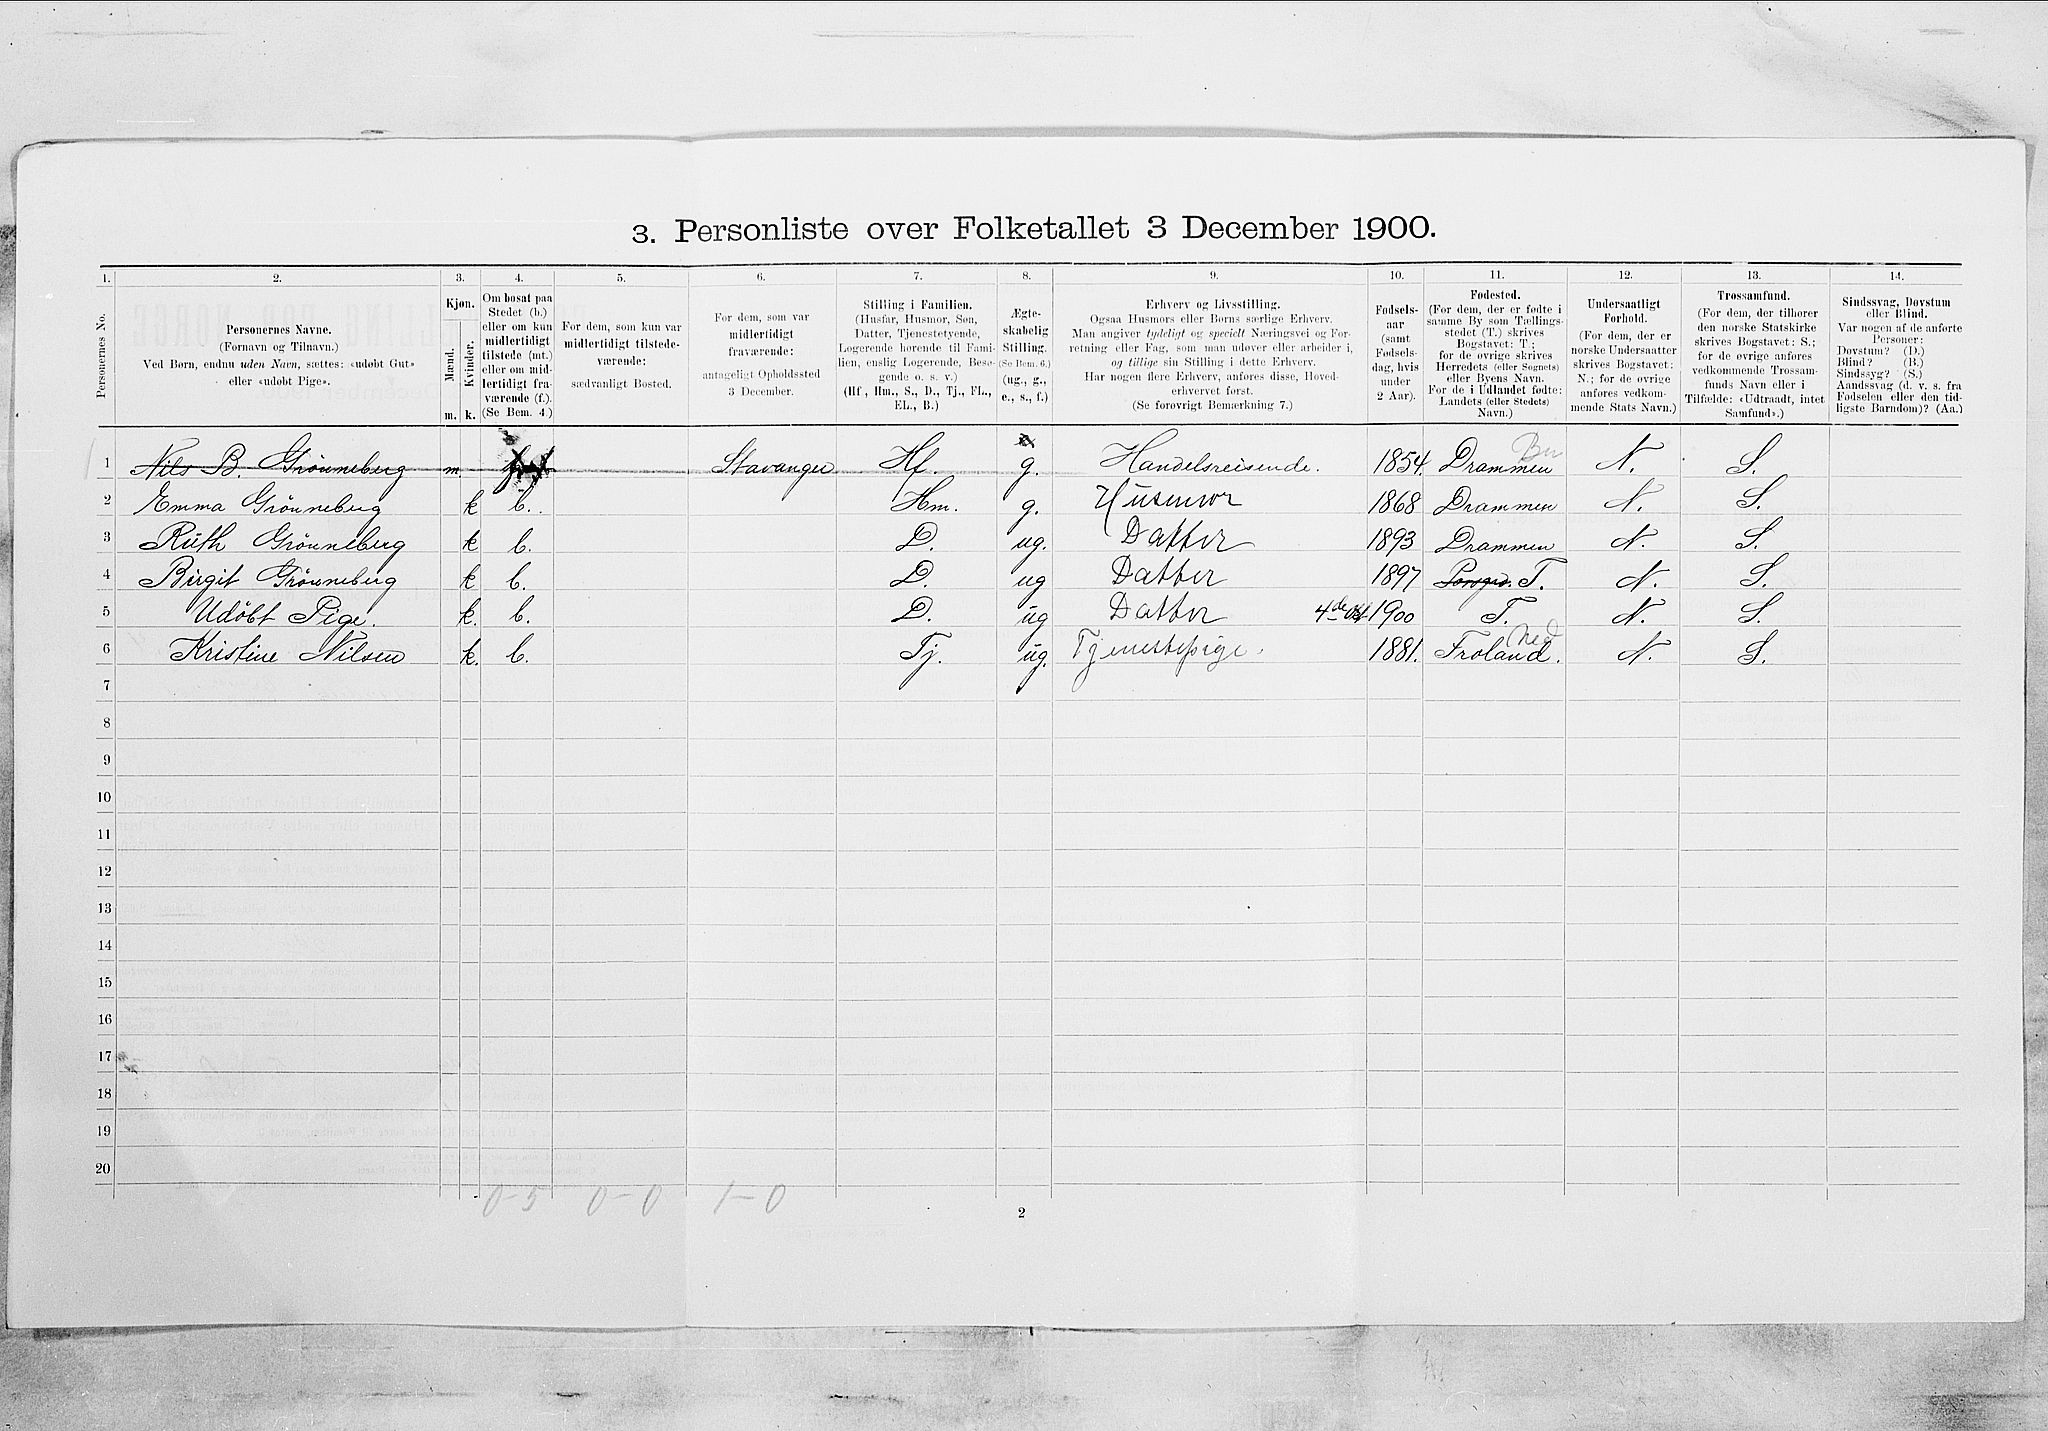 3. Personliste over Folketallet 3 December 1900.
1. 2. 3. 4. 5. 6. 7. 8. 9. 10. 11. 12. 13. 14.
Personernes No.
Personernes Navne.
(Fornavn og Tilnavn.)
Ved Børn, endnu uden Navn, sættes: «udøbt Gut»
eller «udøbt Pige».
Kjøn.
Mænd.
Kvinder.
m. k.
Om bosat paa
Stedet (b.)
eller om kun
midlertidigt
tilstede (mt.)
eller om mid-
lertidigt fra-
værende (f.).
(Se Bem. 4.)
For dem, som kun var
midlertidigt tilstede-
værende:
sædvanligt Bosted.
For dem, som var
midlertidigt
fraværende:
antageligt Opholdssted
3 December.
Stilling i Familien.
(Husfar, Husmor, Søn,
Datter, Tjenestetyende,
Logerende hørende til Fami-
lien, enslig Logerende, Besø-
gende o. s. v.)
(Hf, Hm., S., D., Tj., FL.,
EL., B.)
Ægte-
skabelig
Stilling.
(Se Bem. 6.)
(ug., g.,
e., s., f.)
Erhverv og Livsstilling.
Ogsaa Husmors eller Børns særlige Erhverv.
Man angiver tydeligt og specielt Næringsvei og For-
retning eller Fag, som man udøver eller arbeider i,
og tillige sin Stilling i dette Erhverv.
Har nogen flere Erhverv, anføres disse, Hoved-
erhvervet først.
(Se forøvrigt Bemærkning 7.)
Fødsels-
aar
(samt
Fødsels-
dag, hvis
under
2 Aar).
Fødested.
(For dem, der er fødte i
samme By som Tællings-
stedet (T.) skrives
Bogstavet: T.;
for de øvrige skrives
Herredets (eller Sognets)
eller Byens Navn.
For de i Udlandet fødte:
Landets (eller Stedets)
Navn.)
Undersaatligt
Forhold.
(For dem, der er
norske Undersaatter
skrives Bogstavet:
N.; for de øvrige
anføres vedkom-
mende Stats Navn.)
Trossamfund.
(For dem, der tilhører
den norske Statskirke
skrives Bogstavet: S.;
for de øvrige anføres
vedkommende Trossam-
funds Navn eller i
Tilfælde: «Udtraadt, intet
Samfund».)
Sindssvag, Døvstum
eller Blind.
Var nogen af de anførte
Personer:
Døvstum? (D.)
Blind? (B.)
Sindssyg? (S.)
Aandssvag (d. v. s. fra
Fødselen eller den tid-
ligste Barndom)? (Aa.)
1 Nils B. Grönneberg m. Stavanger Hf. g. Handelsreisende. 1854. Drammen N. S.
2 Emma Grönneberg k b. Hm. g. Husmor 1868 Drammen N. S.
3 Ruth Grönneberg k b. D. ug. Datter 1893 Drammen N. S.
4 Birgit Grönneberg k b. D. ug Datter 1897 T. N. S.
5 Udöbt Pige. k. b. D. ug Datter 4de 1900 T. N. S.
6 Kristine Nilsen k. b. Tj. ug. Tjenestepige. 1881. Froland. N. S.
7
8
9
10
11
12
13
14
15
16
17
18
19
20
0-5 0-0 1-0
2